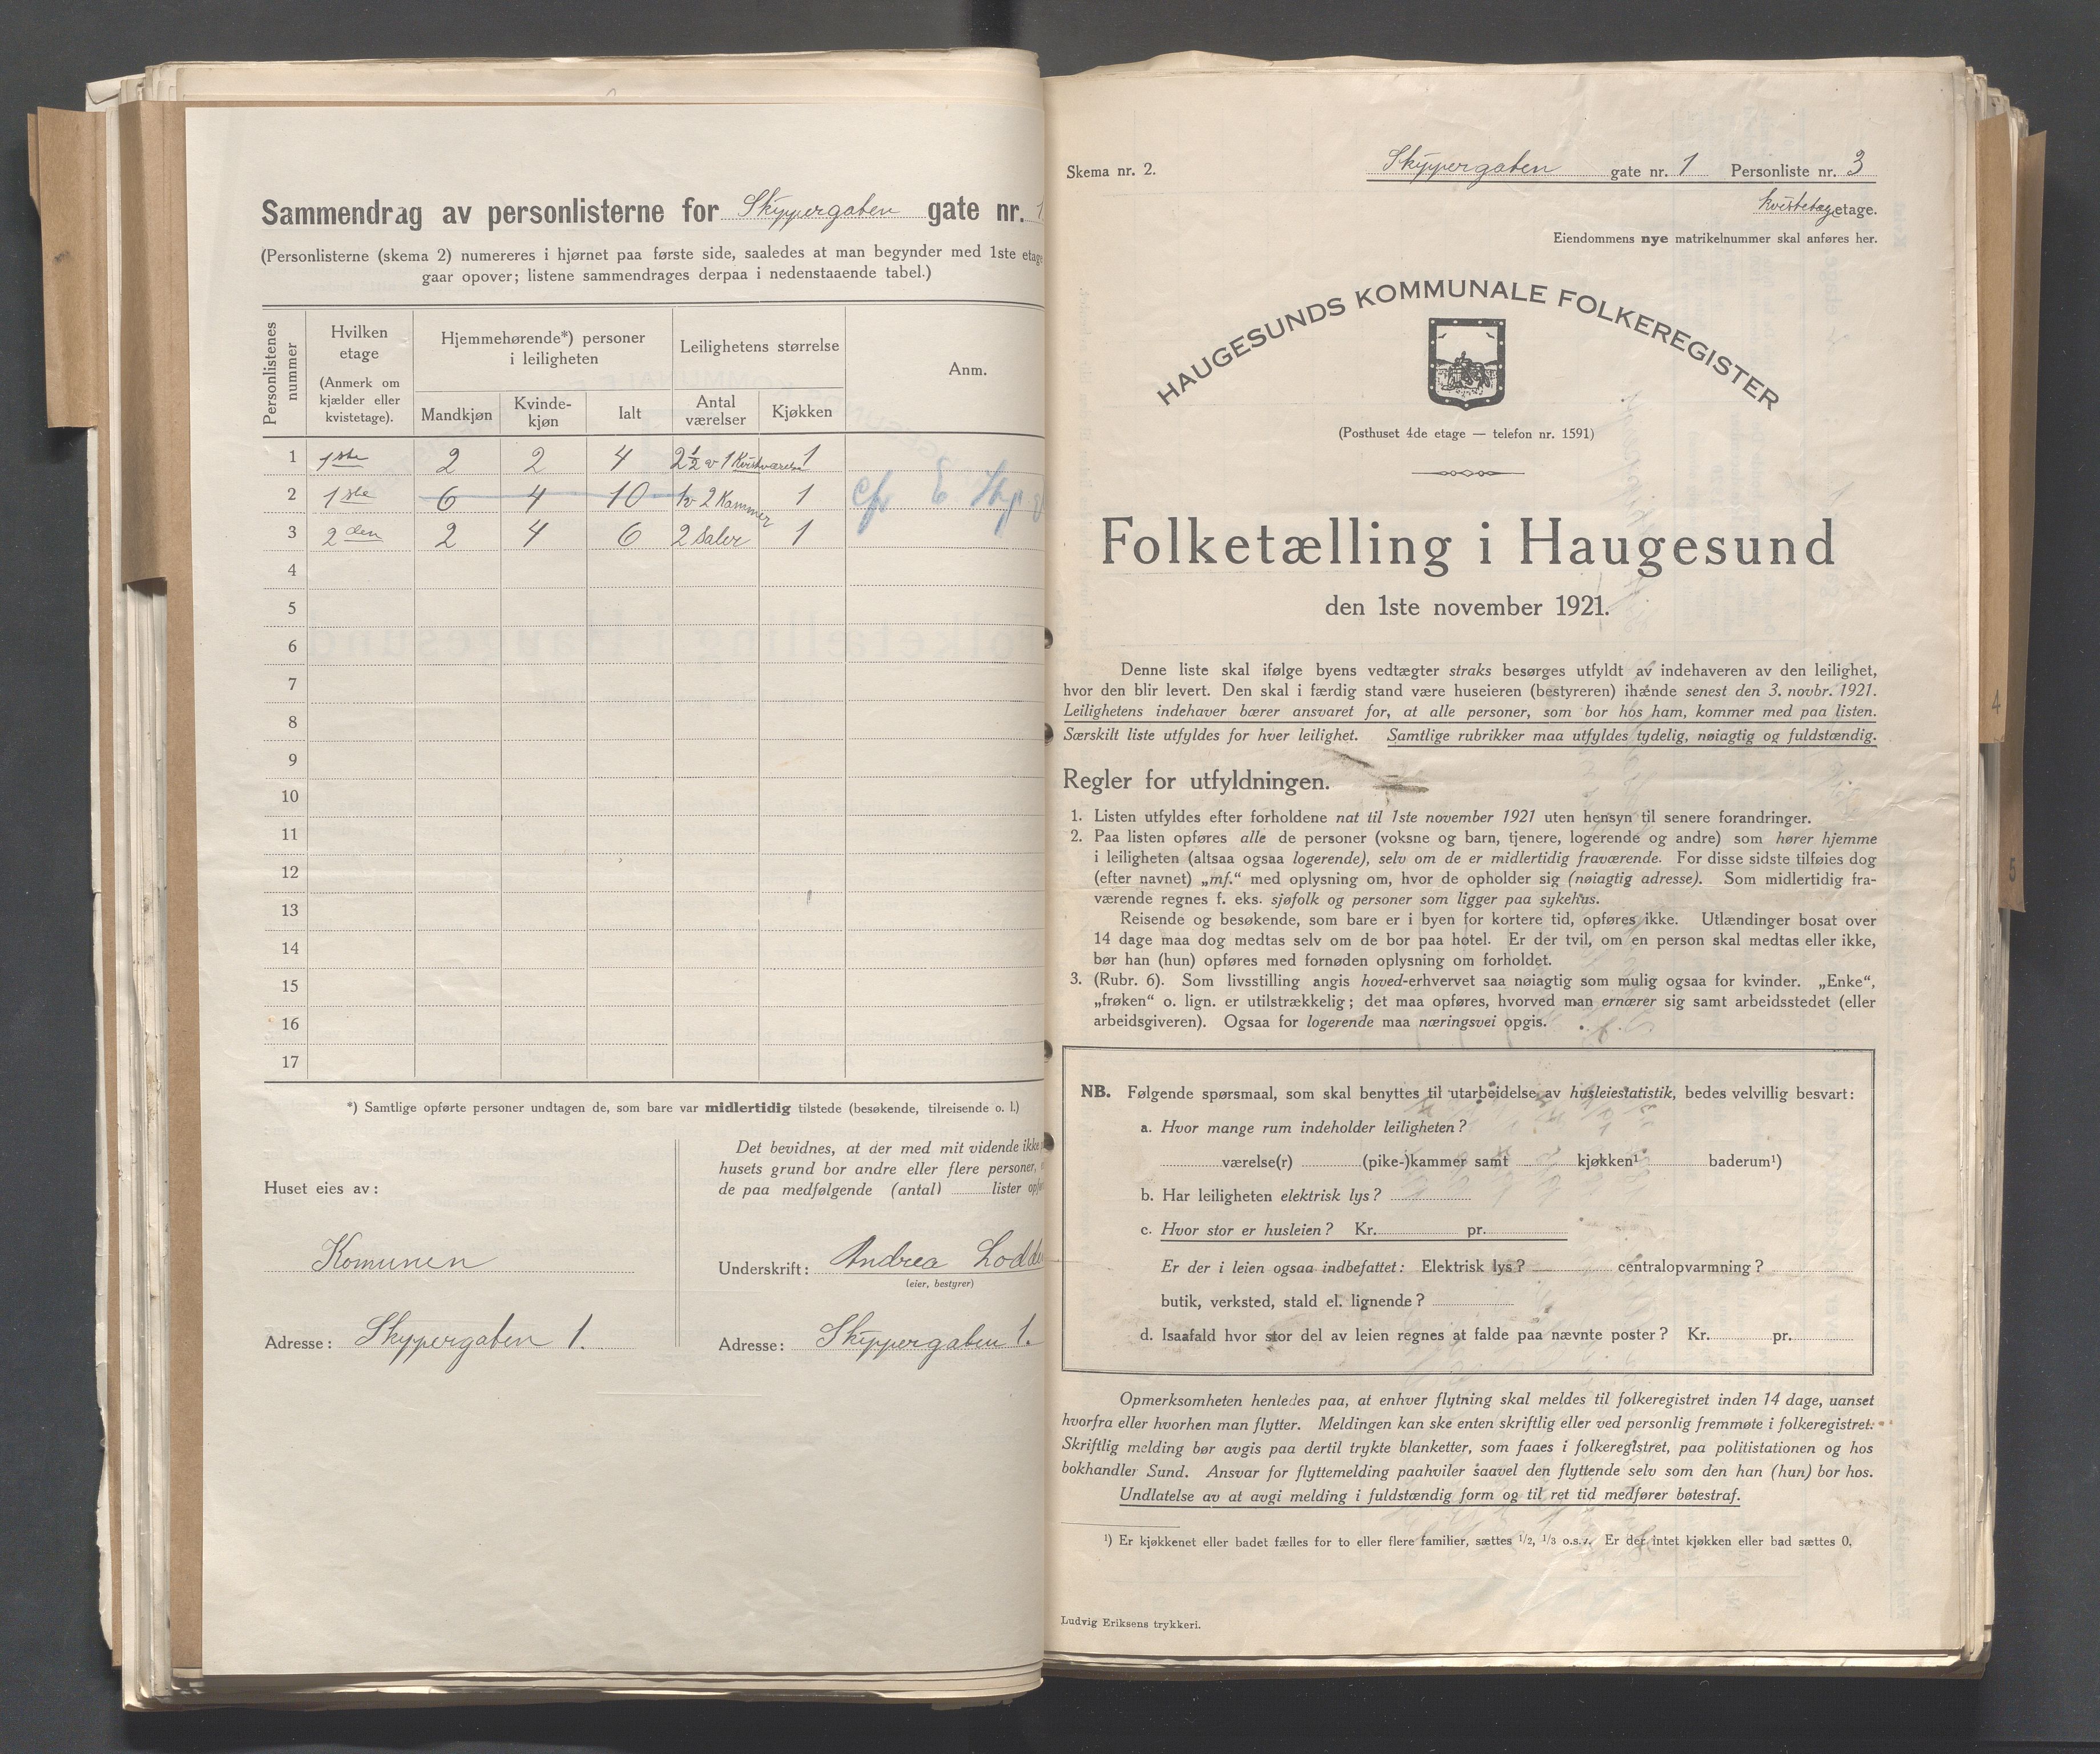 Sammendrag av personlisterne for Skyppergaten gate nr. 1
(Personlisterne (skema 2) numereres i hjørnet paa første side, saaledes at man begynder med 1ste etage
gaar opover; listene sammendrages derpaa i nedenstaaende tabel.)
Personlistenes nummer
Hvilken etage
(Anmerk om kjælder eller kvistetage).
Hjemmehørende*) personer i leiligheten
Mandkjøn
Kvinde-kjøn
Ialt
Leilighetens størrelse
Antal værelser
Kjøkken
Anm.
1 1ste 2 2 4 2½ v 1 Kvistværelse 1
2 1ste 6 4 10 1 v 2 Kammer 1 cfr E
3 2den 2 4 6 2 Saler 1
4
5
6
7
8
9
10
11
12
13
14
15
16
17
*) Samtlige opførte personer undtagen de, som bare var midlertidig tilstede (besøkende, tilreisende o. l.)
Huset eies av:
Komunen
Adresse: Skyppergaten 1.
Det bevidnes, at der med mit vidende ikke
husets grund bor andre eller flere personer,
de paa medfølgende (antal) lister
Underskrift: Andrea
(eier, bestyrer)
Adresse: Skyppergaten 1.
Skema nr. 2.
Skyppergaten gate nr. 1 Personliste nr. 3
kvistetag etage.
Eiendommens nye matrikelnummer skal anføres her.
HAUGESUNDS KOMMUNALE FOLKEREGISTER
(Posthuset 4de etage — telefon nr. 1591)
Folketælling i Haugesund
den 1ste november 1921.
Denne liste skal ifølge byens vedtægter straks besørges utfyldt av indehaveren av den leilighet,
hvor den blir levert. Den skal i færdig stand være huseieren (bestyreren) ihænde senest den 3. novbr. 1921.
Leilighetens indehaver bærer ansvaret for, at alle personer, som bor hos ham, kommer med paa listen.
Særskilt liste utfyldes for hver leilighet. Samtlige rubrikker maa utfyldes tydelig, nøiagtig og fuldstændig.
Regler for utfyldningen.
1. Listen utfyldes efter forholdene nat til 1ste november 1921 uten hensyn til senere forandringer.
2. Paa listen opføres alle de personer (voksne og barn, tjenere, logerende og andre) som hører hjemme
i leiligheten (altsaa ogsaa logerende), selv om de er midlertidig fraværende. For disse sidste tilføies dog
(efter navnet) „mf.“ med oplysning om, hvor de opholder sig (nøiagtig adresse). Som midlertidig fra-
værende regnes f. eks. sjøfolk og personer som ligger paa sykehus.
Reisende og besøkende, som bare er i byen for kortere tid, opføres ikke. Utlændinger bosat over
14 dage maa dog medtas selv om de bor paa hotel. Er der tvil, om en person skal medtas eller ikke,
bør han (hun) opføres med fornøden oplysning om forholdet.
3. (Rubr. 6). Som livsstilling angis hoved-erhvervet saa nøiagtig som mulig ogsaa for kvinder. „Enke“,
„frøken“ o. lign. er utilstrækkelig; det maa opføres, hvorved man ernærer sig samt arbeidsstedet (eller
arbeidsgiveren). Ogsaa for logerende maa næringsvei opgis.
NB. Følgende spørsmaal, som skal benyttes til utarbeidelse av husleiestatistik, bedes velvillig besvart:
a. Hvor mange rum indeholder leiligheten?
værelse(r) (pike-)kammer samt kjøkken¹ baderum¹)
b. Har leiligheten elektrisk lys?
c. Hvor stor er husleien? Kr. pr.
Er der i leien ogsaa indbefattet: Elektrisk lys? centralopvarmning?
butik, verksted, stald el. lignende?
d. Isaafald hvor stor del av leien regnes at falde paa nævnte poster? Kr. pr.
Opmerksomheten henledes paa, at enhver flytning skal meldes til folkeregistret inden 14 dage, uanset
hvorfra eller hvorhen man flytter. Meldingen kan ske enten skriftlig eller ved personlig fremmøte i folkeregistret.
Skriftlig melding bør avgis paa dertil trykte blanketter, som faaes i folkeregistret, paa politistationen og hos
bokhandler Sund. Ansvar for flyttemelding paahviler saavel den flyttende selv som den han (hun) bor hos.
Undlatelse av at avgi melding i fuldstændig form og til ret tid medfører bøtestraf.
¹) Er kjøkkenet eller badet fælles for to eller flere familier, sættes 1/2, 1/3 o.s.v. Er der intet kjøkken eller bad sættes 0.
Ludvig Eriksens trykkeri.
4
5